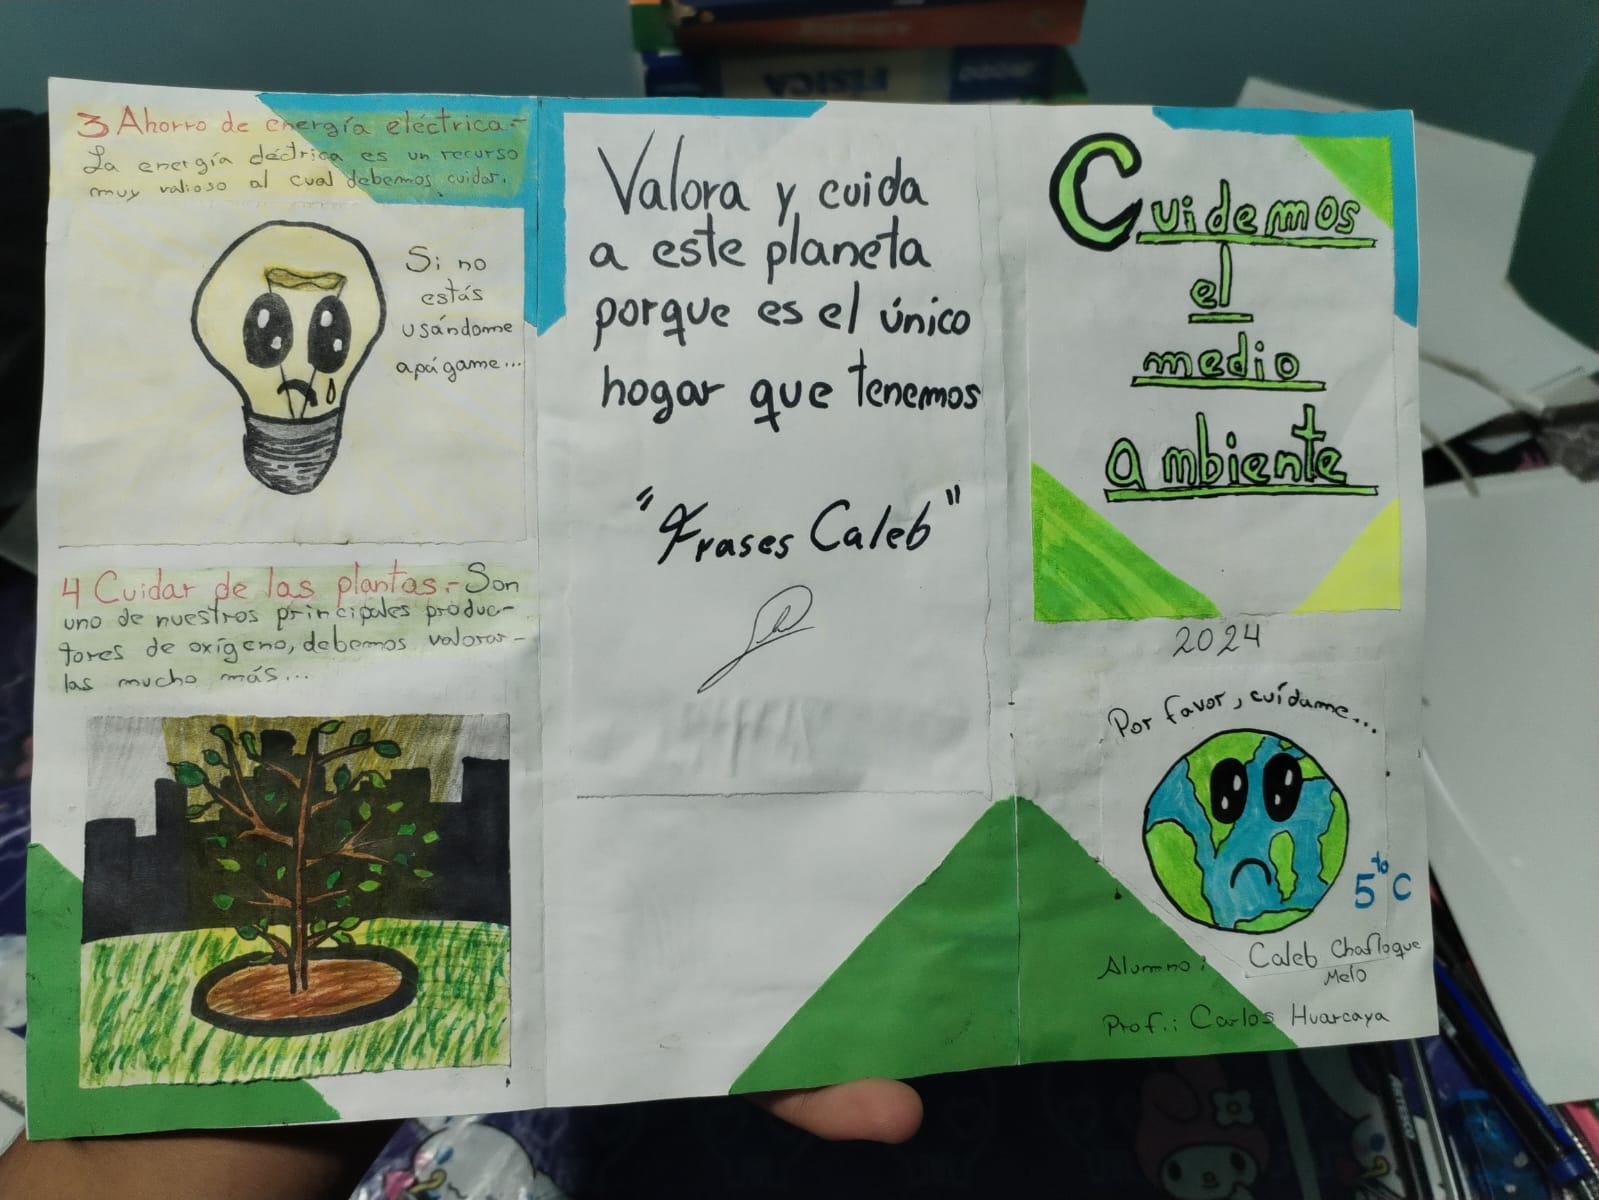 3 Ahorro de energía eléctrica.-
La energía eléctrica es un recurso
muy valioso al cual debemos cuidar.
Si no
estás
usándome
apágame...
4 Cuidar de las plantas.- Son
uno de nuestros principales produc-
tores de oxígeno, debemos valorar-
las mucho más...
Valora y cuida
a este planeta
porque es el único
hogar que tenemos
"Frases Caleb"
Cuidemos
el
medio
ambiente
2024
Por favor, cuídame...
5to C
Alumno: Caleb Chafloque
Melo
Prof.: Carlos Huarcaya
FÍSICA